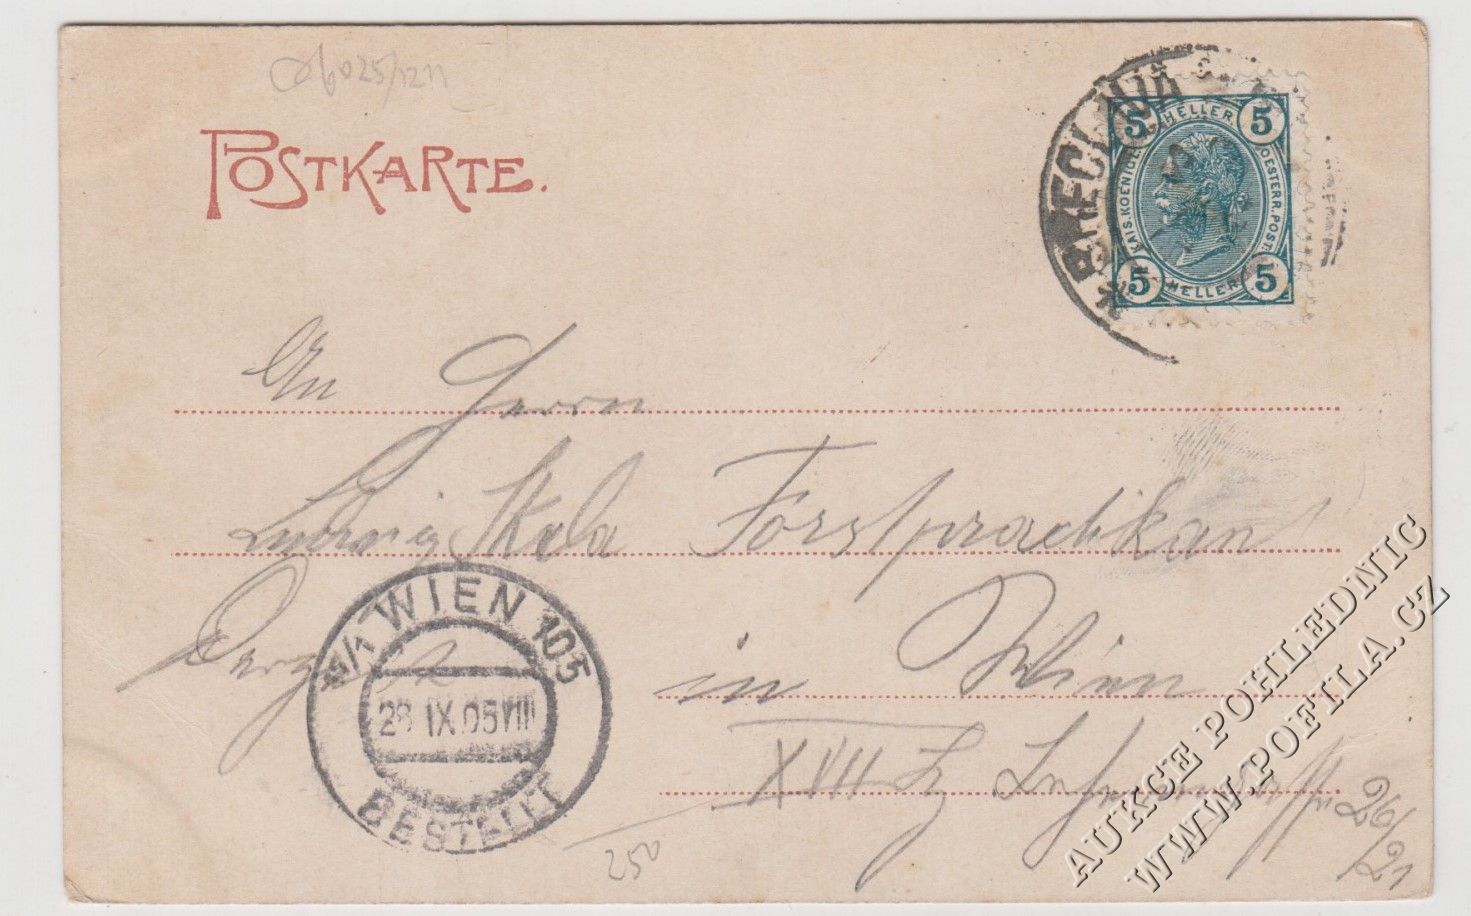 POSTKARTE.
BŘECLAVA
5 HELLER 5
KAIS. KOENIGL.
OESTERR. POST.
5 HELLER 5
An Herrn
Ludwig Skala Forstpracktikan
in Wien
XVII
26/21
4/1 WIEN 105
28 IX 05 VIII
BESTELLT
250
AUKCE POHLEDNIC
WWW.POFILA.CZ